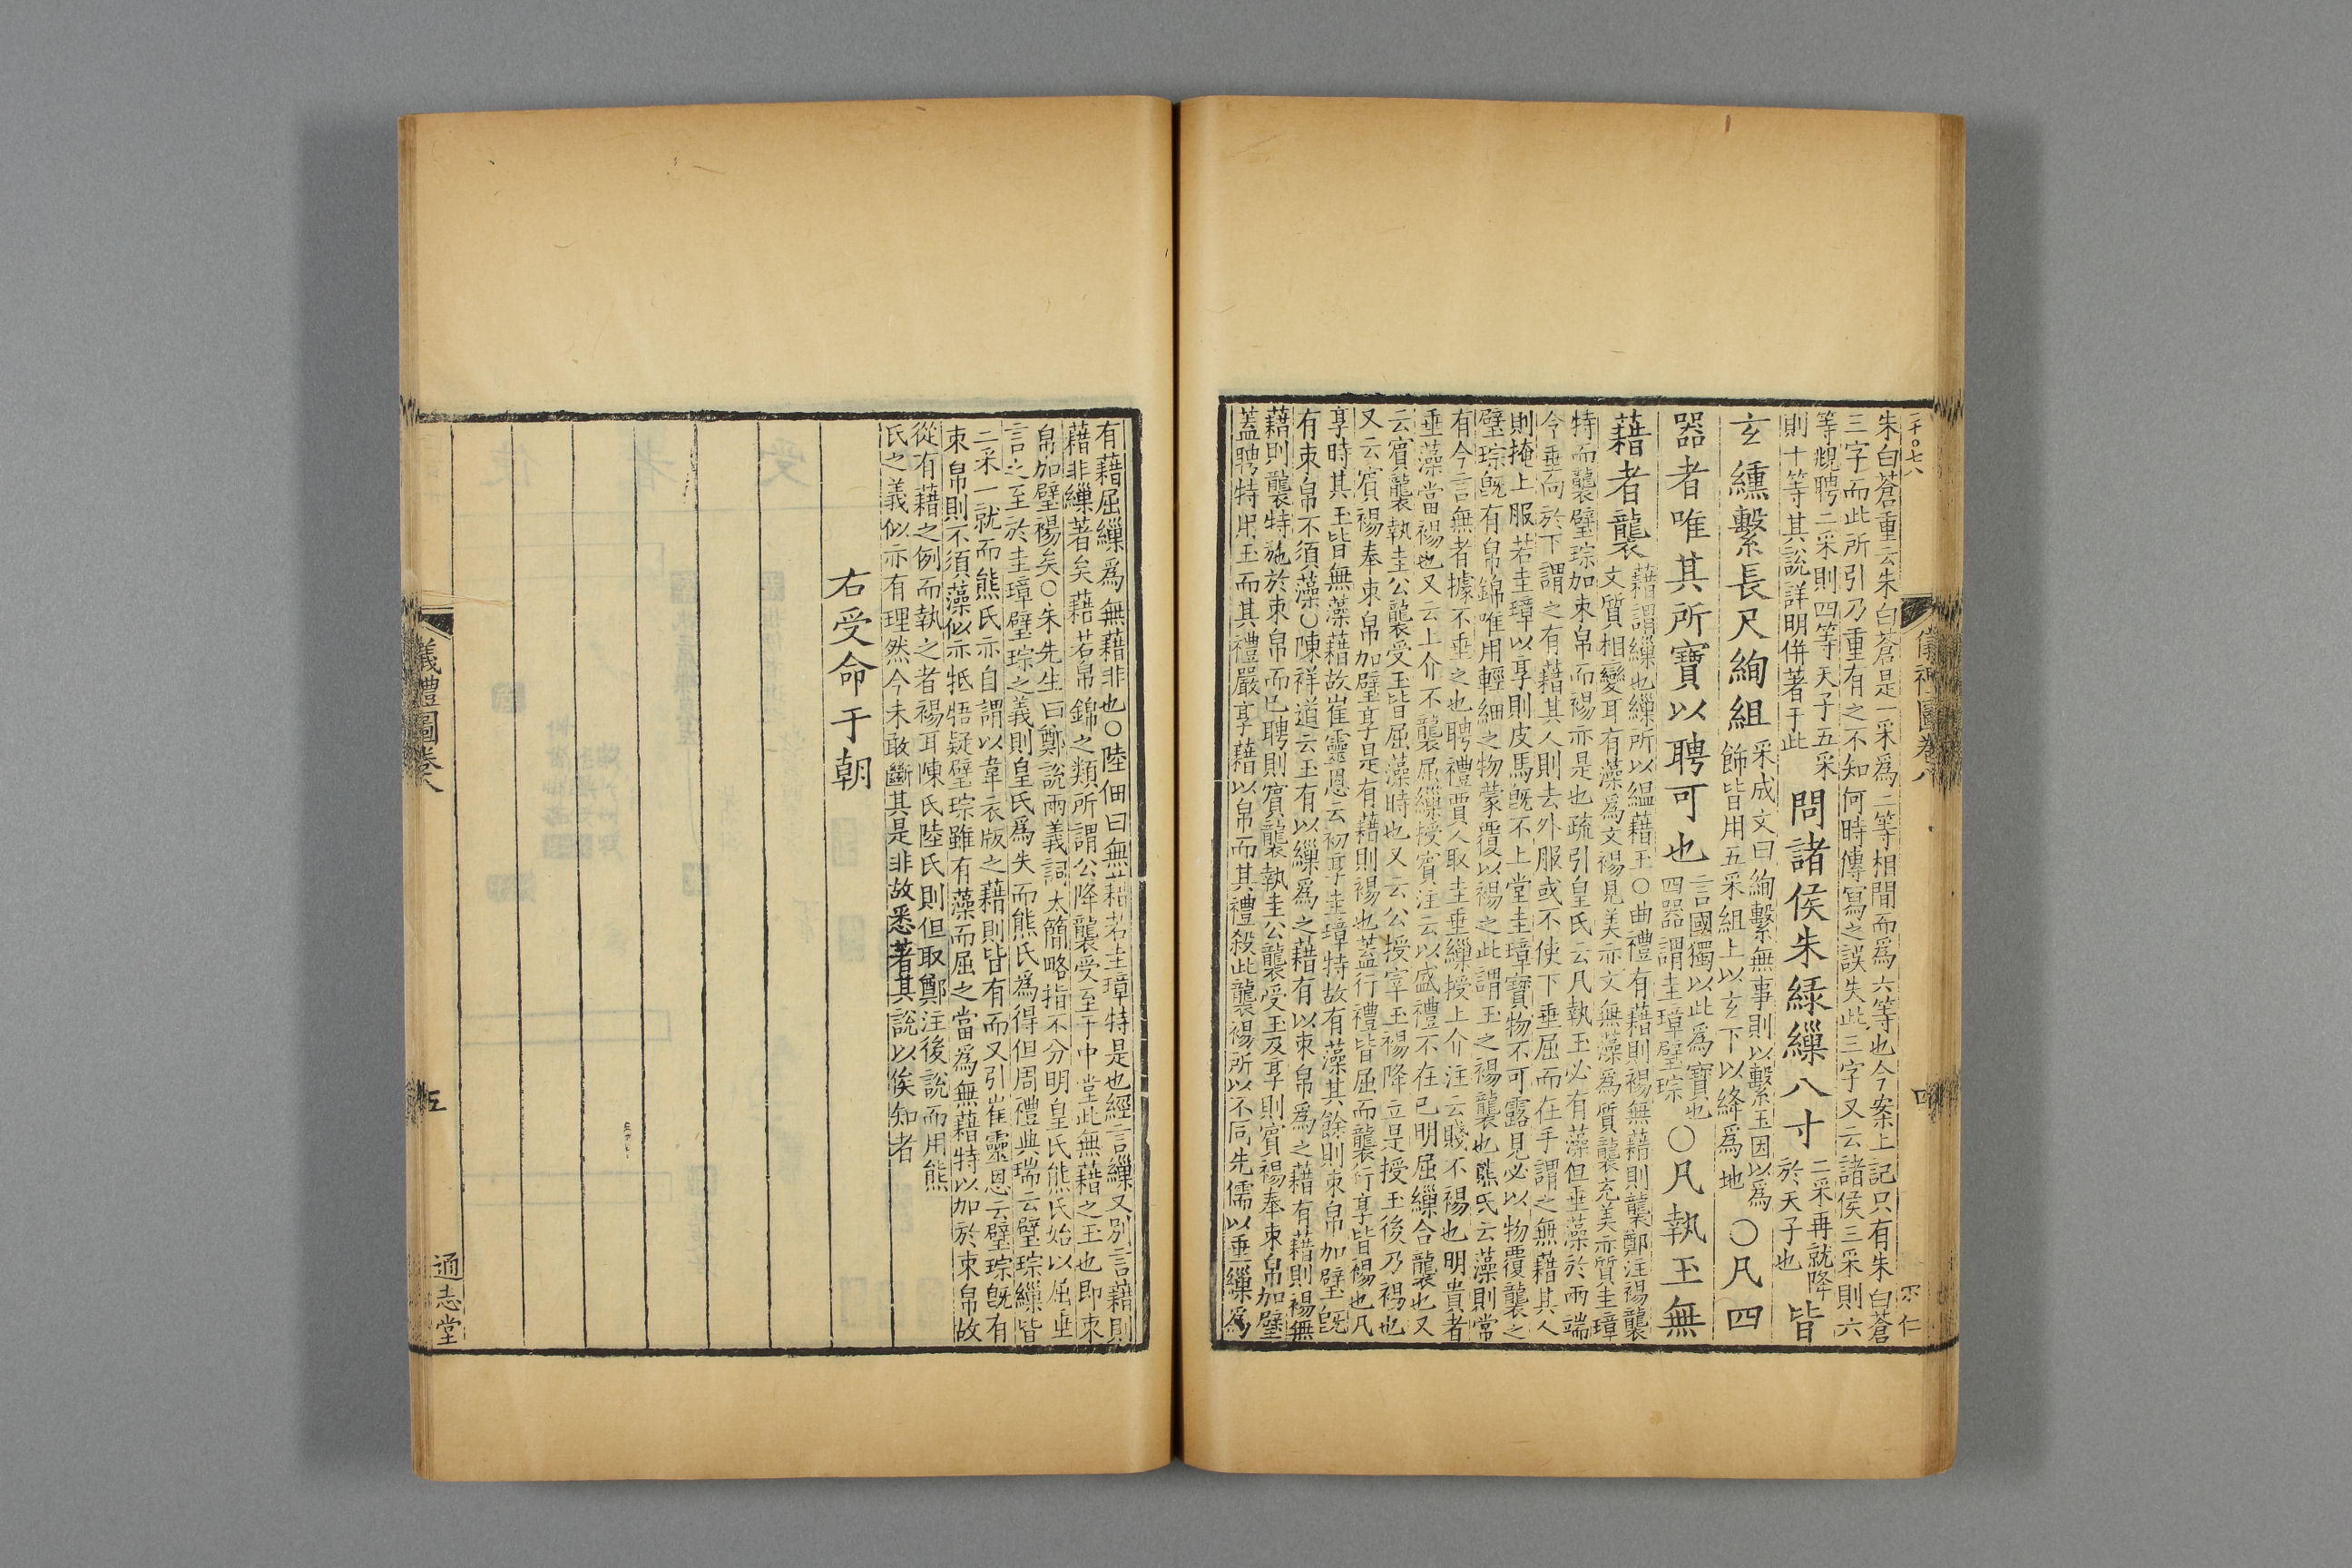 二千〇七八
儀禮圖卷八
四
宋仁
朱白蒼重云朱白蒼是一采爲二等相間而爲六等也今案上記只有朱白蒼
三字而此所引乃重有之不知何時傳寫之誤失此三字又云諸侯三采則六
等覜聘二采則四等天子五采
則十等其說詳明併著于此
問諸侯朱綠繅八寸
二采再就降
於天子也
皆
玄纁繫長尺絢組
采成文曰絢繫無事則以繫玉因以爲
飾皆用五采組上以玄下以絳爲地
〇凡四
器者唯其所寶以聘可也
言國獨以此爲寶也
四器謂圭璋璧琮
〇凡執玉無
藉者襲
藉謂繅也繅所以縕藉玉〇曲禮有藉則裼無藉則襲鄭注裼襲
文質相變耳有藻爲文裼見美亦文無藻爲質襲充美亦質圭璋
特而襲璧琮加束帛而裼亦是也疏引皇氏云凡執玉必有藻但垂藻於兩端
今垂向於下謂之有藉其人則去外服或不使下垂屈而在手謂之無藉其人
則掩上服若圭璋以享則皮馬旣不上堂圭璋寶物不可露見必以物覆襲之
璧琮旣有帛錦唯用輕細之物蒙覆以裼之此謂玉之裼襲也熊氏云藻則常
有今言無者據不垂之也聘禮賈人取圭垂繅授上介注云賤不裼也明貴者
垂藻當裼也又云上介不襲屈繅授賓注云以盛禮不在已明屈繅合襲也又
云賓襲執圭公襲受玉皆屈藻時也又云公授宰玉裼降立是授玉後乃裼也
又云賓裼奉束帛加璧享是有藉則裼也蓋行禮皆屈而襲行享皆裼也凡
享時其玉皆無藻藉故崔靈恩云初享圭璋特故有藻其餘則束帛加璧旣
有束帛不須藻〇陳祥道云玉有以繅爲之藉有以束帛爲之藉有藉則裼無
藉則襲特施於束帛而已聘則賓襲執圭公襲受玉及享則賓裼奉束帛加璧
蓋聘特用玉而其禮嚴享藉以帛而其禮殺此襲裼所以不同先儒以垂繅爲
有藉屈繅爲無藉非也〇陸佃曰無藉若圭璋特是也經言繅又別言藉則
藉非繅著矣藉若帛錦之類所謂公降襲受至于中堂此無藉之玉也即束
帛加璧裼矣〇朱先生曰鄭說兩義詞太簡略指不分明皇氏熊氏始以屈垂
言之至於圭璋璧琮之義則皇氏爲失而熊氏爲得但周禮典瑞云璧琮繅皆
二采一就而熊氏亦自謂以韋衣版之藉則皆有而又引崔靈恩云璧琮旣有
束帛則不須藻似亦牴牾疑璧琮雖有藻而屈之當爲無藉特以加於束帛故
從有藉之例而執之者裼耳陳氏陸氏則但取鄭注後說而用熊
氏之義似亦有理然今未敢斷其是非故悉著其說以俟知者
右受命于朝
儀禮圖卷八
五
通志堂